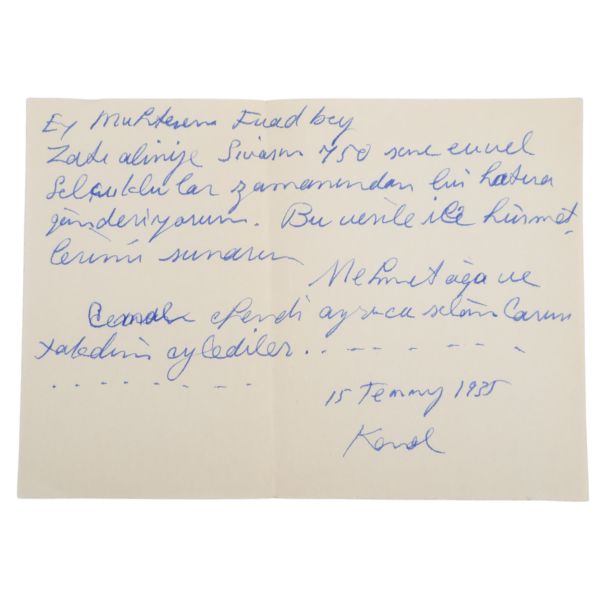 Ey Muhterem Fuad bey
Zatı alinize Sivasın 750 sene evvel
Selçuklular zamanından bir hatıra
gönderiyorum. Bu vesile ile hürmet
lerimi sunarım
Mehmet ağa ve
efendi ayrıca selâmlarını
takdim eylediler. . - - - - -
. . . - - . - - -
15 Temmuz 1935